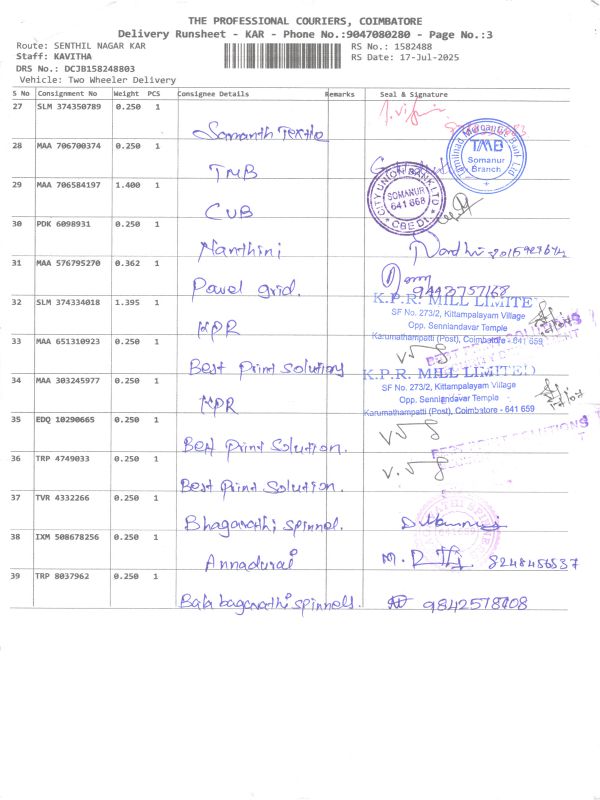 THE PROFESSIONAL COURIERS, COIMBATORE
Delivery Runsheet - KAR - Phone No.:9047080280 - Page No.:3
Route: SENTHIL NAGAR KAR
RS No.: 1582488
Staff: KAVITHA
RS Date: 17-Jul-2025
DRS No.: DCJB158248803
Vehicle: Two Wheeler Delivery
S No Consignment No Weight PCS Consignee Details Remarks Seal & Signature
27 SLM 374350789 0.250 1
Somanth Textile
28 MAA 706700374 0.250 1
TMB
Tamilnad Mercantile Bank Ltd
TMB
Somanur
Branch
29 MAA 706584197 1.400 1
CUB
CITY UNION BANK LTD
SOMANUR
641 668
CBE DT.
30 PDK 6098931 0.250 1
Nanthini
31 MAA 576795270 0.362 1
Pavel grid.
9443757168
32 SLM 374334018 1.395 1
KPR
K.P.R. MILL LIMITE
SF No. 273/2, Kittampalayam Village
Opp. Senniandavar Temple
Karumathampatti (Post), Coimbatore - 641 659
33 MAA 651310923 0.250 1
Best Print Solutions
34 MAA 303245977 0.250 1
KPR
K.P.R. MILL LIMITED
SF No. 273/2, Kittampalayam Village
Opp. Senniandavar Temple
Karumathampatti (Post), Coimbatore - 641 659
35 EDQ 10290665 0.250 1
Best Print Solution.
36 TRP 4749033 0.250 1
Best Print Solution.
37 TVR 4332266 0.250 1
Bhagavathi Spinnel.
38 IXM 508678256 0.250 1
Annadurai
8248456537
39 TRP 8037962 0.250 1
Bala bagavathi spinnels.
9842578708